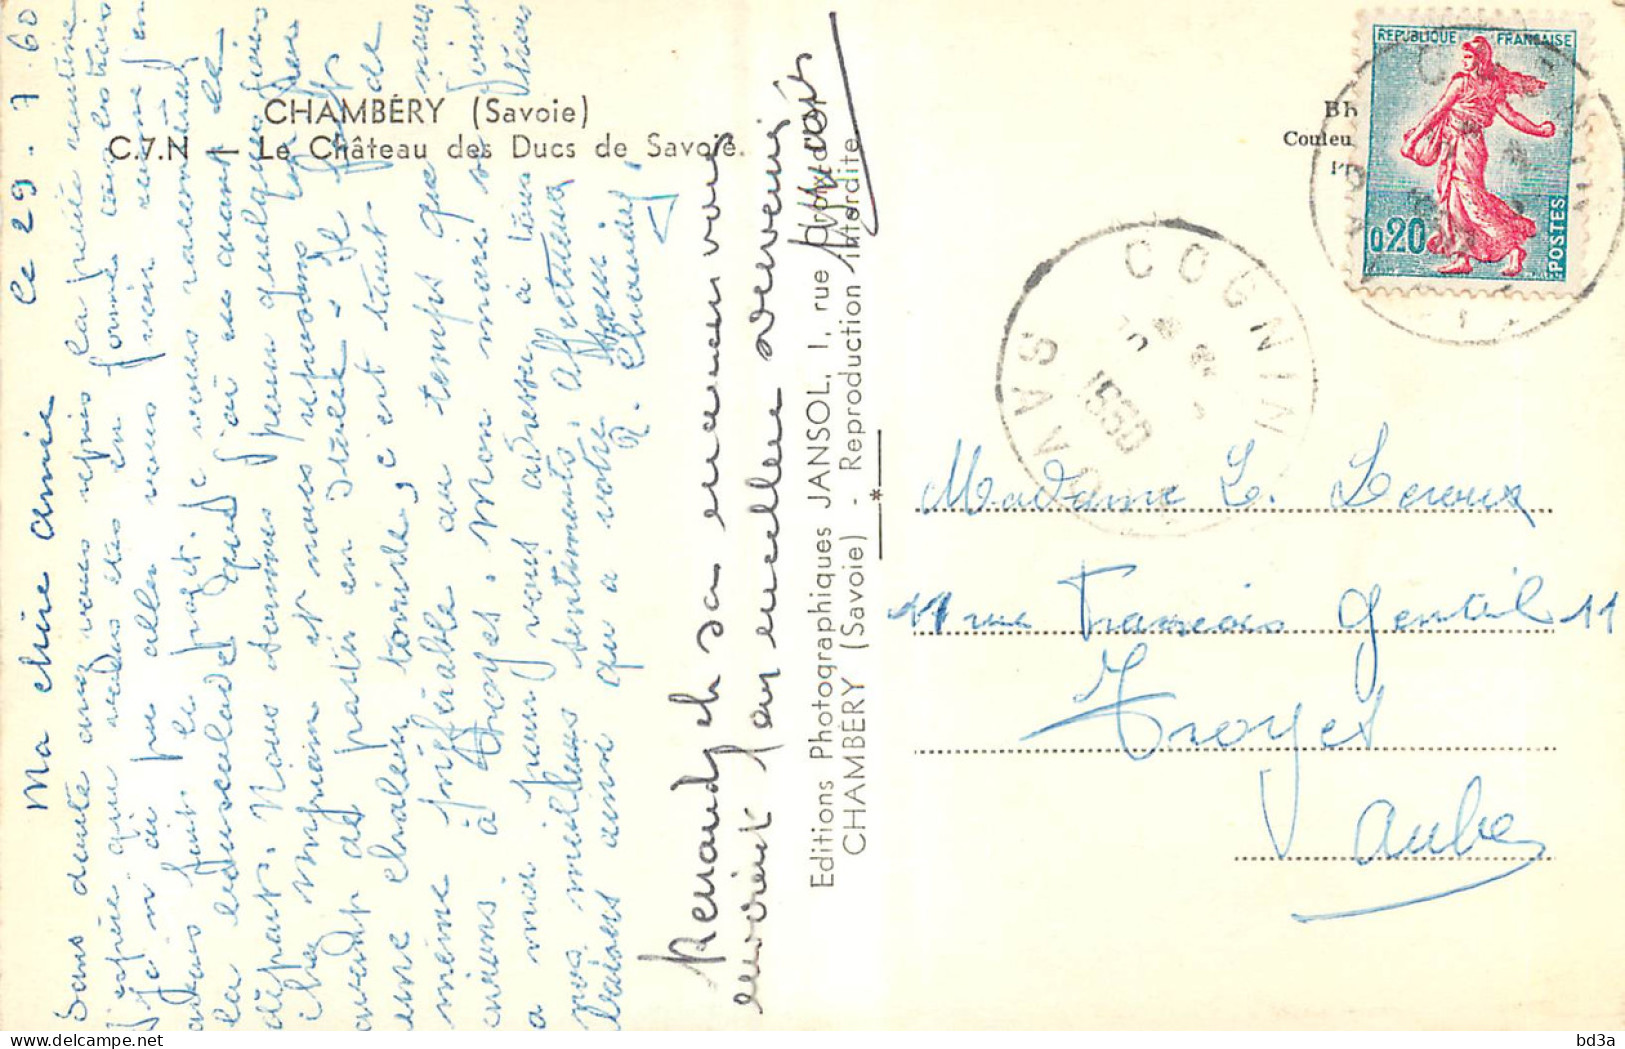 CHAMBÉRY (Savoie)
C.7.N — Le Château des Ducs de Savoie.
Ce 29.7.60
Ma chère amie
Sans doute avez vous repris la petite routine
j'espère que vous êtes en forme tous les trois
je n'ai pu aller vous voir comme j'en
avais fait le projet. je vous raconterai
la bousculade que j'ai eu avant le
départ. Nous sommes pour quelques jours
chez maman et nous reposons un peu
avant de partir en Italie. Il fait
une chaleur torride, c'est tout de
même préférable au temps que nous
avions à Troyes. Mon mari se joint
à moi pour vous adresser à tous
nos meilleurs sentiments. Affectueux
baisers ainsi qu'à votre
R. Chomier
Renaudy et sa maman vous
envoient leur meilleur souvenir
Editions Photographiques JANSOL, 1, rue
CHAMBÉRY (Savoie) - Reproduction Interdite
REPUBLIQUE FRANÇAISE
0,20
POSTES
Couleu
COGNIN
SAVOIE
1960
Madame L. Leroux
11 rue François Gentil 11
Troyes
Aube
bd3a